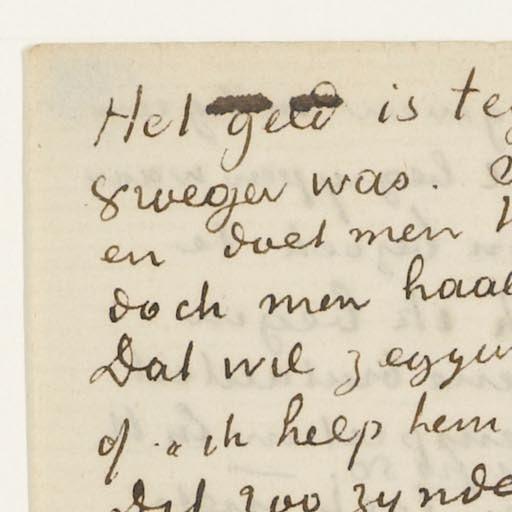 Het geld is te
vroeger was.
en doet men
doch men haal
Dat wil zeggen
of „ik help hem
Dit zoo zynde